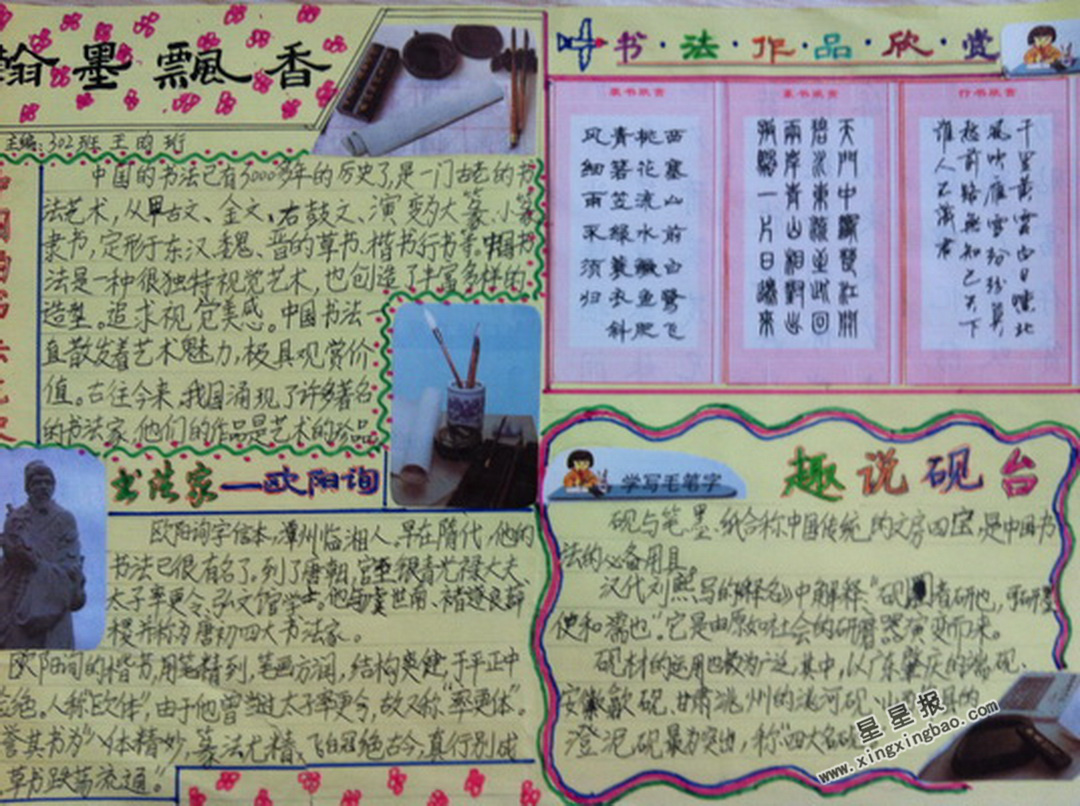 翰墨飘香
主编:302班 王昀珩
中国的书法已有3000多年的历史了,是一门古老的书
法艺术,从甲古文、金文、石鼓文、演变为大篆、小篆
隶书,定形于东汉、魏、晋的草书、楷书行书等。中国书
法是一种很独特视觉艺术,也创造了丰富多样的
造型。追求视觉美感。中国书法一
直散发着艺术魅力,极具观赏价
值。古往今来,我国涌现了许多著名
的书法家,他们的作品是艺术的珍品
书法家——欧阳询
欧阳询字信本,潭州临湘人。早在隋代,他的
书法已很有名了。到了唐朝,官至银青光禄大夫、
太子率更令、弘文馆学士。他与虞世南、褚遂良薛
稷并称为唐初四大书法家。
欧阳询的楷书,用笔精到,笔画方润,结构爽健,于平正中
绝。人称"欧体",由于他曾当过太子率更令,故又称"率更体"。
誉其书为"八体精妙,篆法尤精,飞白冠绝古今,真行别成
草书跌荡流通。"
书·法·作·品·欣·赏
隶书纸言
西塞山前白鹭飞
桃花流水鳜鱼肥
青箬笠绿蓑衣
斜风细雨不须归
篆书纸言
天门中断楚江开
碧水东流至此回
两岸青山相对出
孤帆一片日边来
行书纸言
千里黄云白日曛北
风吹雁雪纷纷莫
愁前路无知己天下
谁人不识君
学写毛笔字
趣说砚台
砚与笔、墨、纸合称中国传统的文房四宝,是中国书
法的必备用具。
汉代刘熙写的《释名》中解释:"砚者研也,可研墨
使和濡也"。它是由原始社会的研磨器演变而来。
砚材的运用也较为广泛,其中,以广东肇庆的端砚、
安徽歙砚、甘肃洮州的洮河砚、山西
澄泥砚最为突出,称"四大名砚
星星报
www.xingxingbao.com